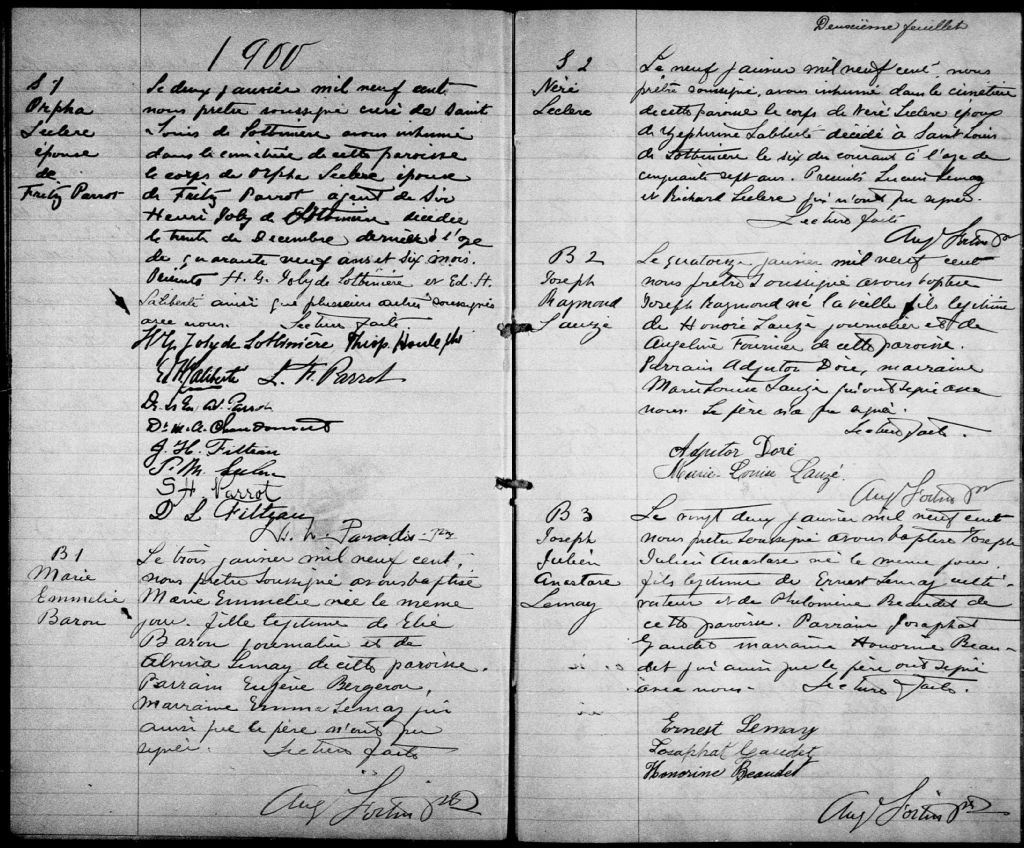 1900
S 1
Orpha
Leclerc
épouse
de
Fritz Parrot
Le deux janvier mil neuf cent
nous prêtre soussigné curé de Saint
Louis de Lotbinière avons inhumé
dans le cimetière de cette paroisse
le corps de Orpha Leclerc épouse
de Fritz Parrot agent de Sir
Henri Joly de Lotbinière décédée
le trente de Decembre dernier à l'age
de quarante neuf ans et six mois.
Présents H. G. Joly de Lotbinière et Ed. H.
Laliberté ainsi que plusieurs autres soussignés
avec nous. Lecture faite
H G Joly de Lotbinière
Ed H Laliberté L. F. Parrot
Parrot
J. H. Filteau
S H Parrot
D L Filteau
Paradis
B 1
Marie
Emmelie
Baron
Le trois janvier mil neuf cent,
nous prêtre soussigné avons baptisé
Marie Emmelie née le meme
jour. fille legitime de Elie
Baron journalier et de
Alvina Lemay de cette paroisse.
Parrain Eugène Bergeron,
Marraine Emma Lemay qui
ainsi que le père n'ont pu
signer. Lecture faite
Aug Fortin ptr
Deuxième feuillet
S 2
Néré
Leclerc
Le neuf janvier mil neuf cent, nous
prêtre soussigné, avons inhumé dans le cimetière
de cette paroisse le corps de Néré Leclerc époux
de Zephirine Laliberté décédé à Saint Louis
de Lotbinière le six du courant à l'age de
cinquante sept ans. Présents Lucien Lemay
et Richard Leclerc qui n'ont pu signer.
Lecture faite
Aug Fortin ptr
B 2
Joseph
Raymond
Lauzé
Le quatorze janvier mil neuf cent
nous prêtre soussigné avons baptisé
Joseph Raymond né la veille fils legitime
de Honoré Lauzé journalier et de
Angeline Fournier de cette paroisse.
Parrain Adjutor Doré, marraine
Marie Louise Lauzé qui ont signé avec
nous. Le père n'a pu signer.
Lecture faite.
Adjutor Doré
Marie-Louise Lauzé.
Aug Fortin ptr
B 3
Joseph
Julien
Anastase
Lemay
Le vingt deux janvier mil neuf cent
nous prêtre soussigné avons baptisé Joseph
Julien Anastase né le meme jour,
fils legitime de Ernest Lemay culti-
vateur et de Philomine Beaudet de
cette paroisse. Parrain Josaphat
Gaudet marraine Honorine Beau-
det qui ainsi que le père ont signé
avec nous. Lecture faite.
Ernest Lemay
Josaphat Gaudet
Honorine Beaudet
Aug Fortin ptr